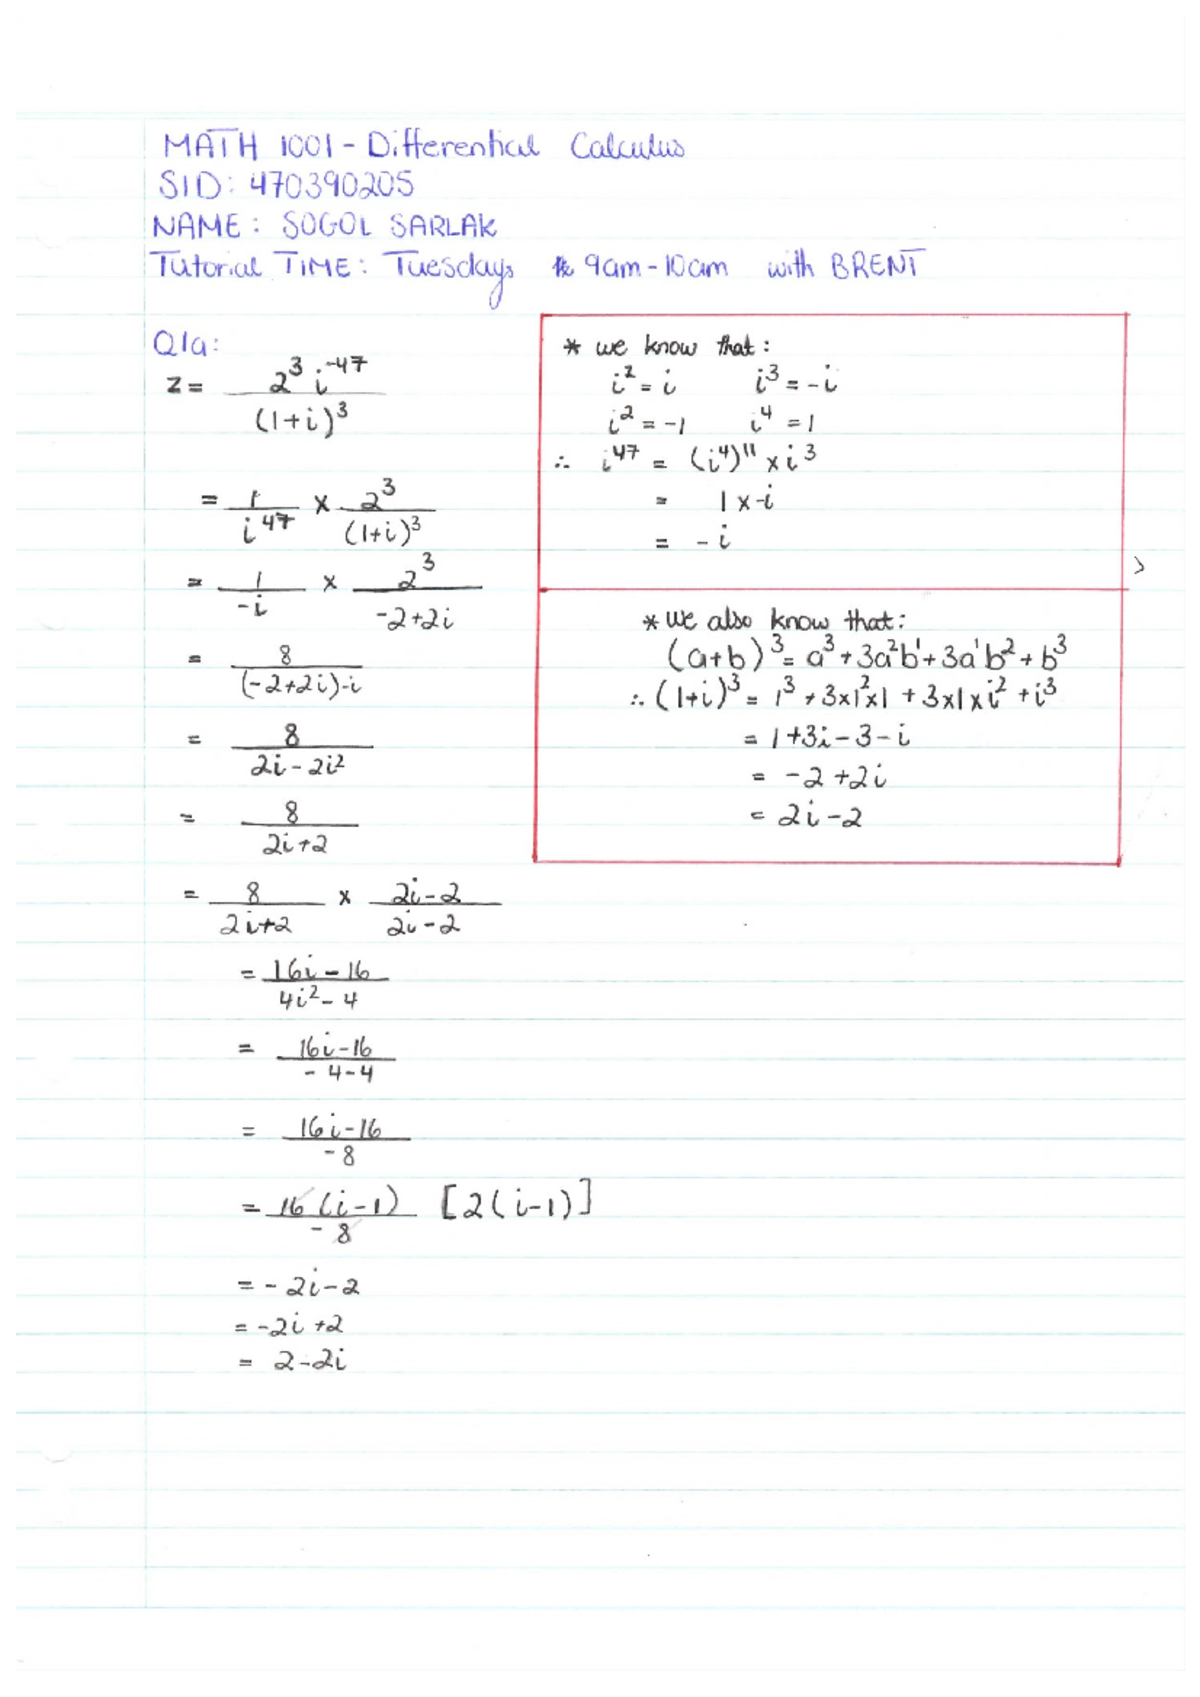 MATH 1001 - Differential Calculus
SID: 470390205
NAME: SOGOL SARLAK
Tutorial TIME: Tuesdays 9am-10am with BRENT
Q1a:
z = 2³ i⁻⁴⁷ / (1+i)³
= 1/i⁴⁷ × 2³/(1+i)³
= 1/-i × 2³/-2+2i
= 8/(-2+2i)-i
= 8/2i-2i²
= 8/2i+2
= 8/2i+2 × 2i-2/2i-2
= 16i-16/4i²-4
= 16i-16/-4-4
= 16i-16/-8
= 16(i-1)/-8 [2(i-1)]
= - 2i-2
= -2i+2
= 2-2i
* we know that:
i² = i i³ = -i
i² = -1 i⁴ = 1
∴ i⁴⁷ = (i⁴)¹¹ × i³
= 1 x-i
= - i
* we also know that:
(a+b)³ = a³+3a²b¹+3a¹b²+b³
∴ (1+i)³ = 1³+3x1²x1 + 3x1xi² + i³
= 1+3i-3-i
= -2+2i
= 2i-2